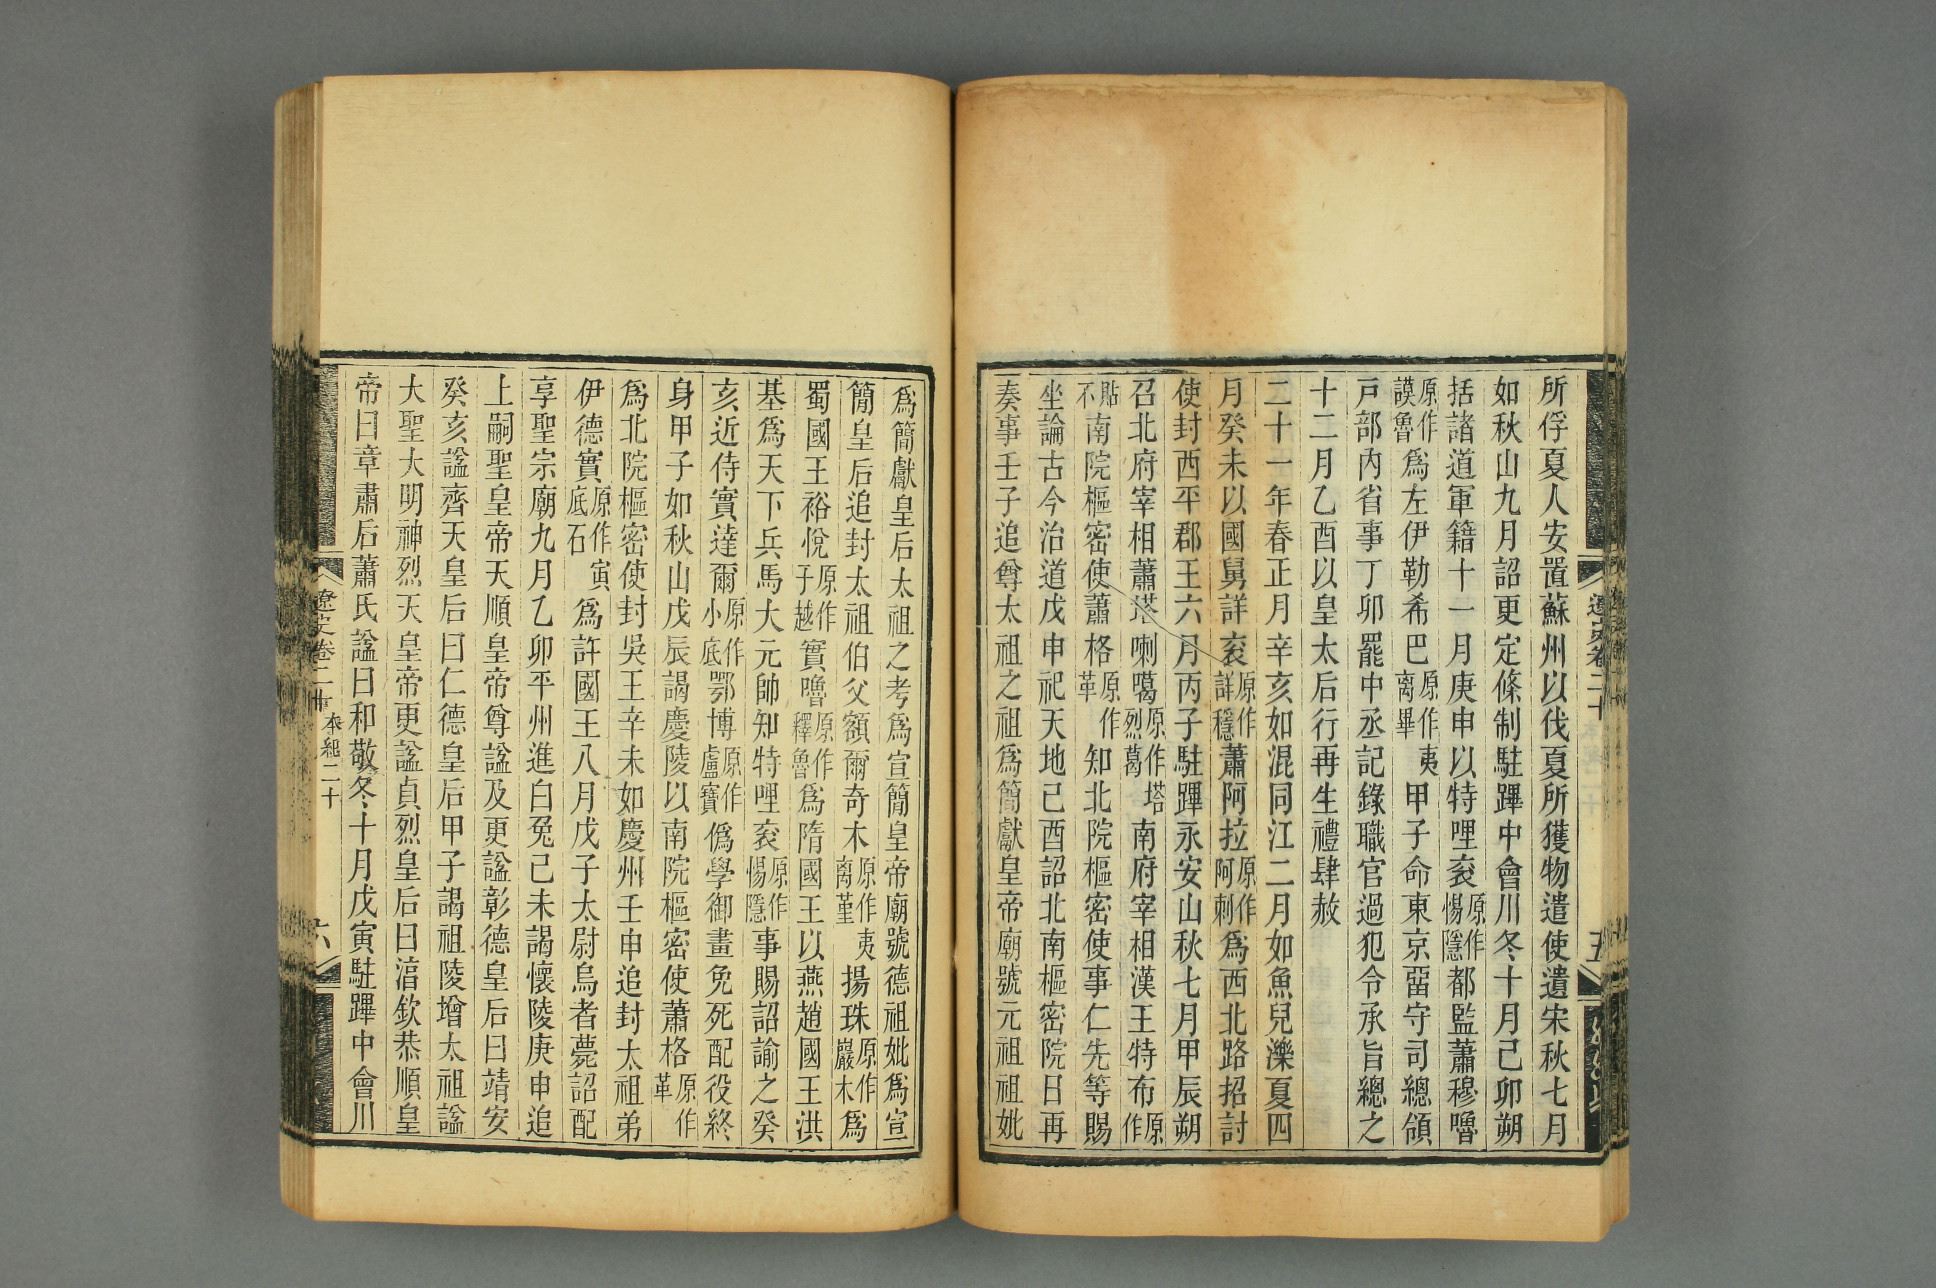 所俘夏人安置蘇州以伐夏所獲物遣使遺宋秋七月
如秋山九月詔更定條制駐蹕中會川冬十月己卯朔
括諸道軍籍十一月庚申以特哩衮原作惕隱都監蕭穆嚕
原作謨魯爲左伊勒希巴原作夷离畢甲子命東京留守司總領
戸部内省事丁卯罷中丞記錄職官過犯令承旨總之
十二月乙酉以皇太后行再生禮肆赦
二十一年春正月辛亥如混同江二月如魚兒濼夏四
月癸未以國舅詳衮原作詳穩蕭阿拉原作阿剌爲西北路招討
使封西平郡王六月丙子駐蹕永安山秋七月甲辰朔
召北府宰相蕭塔喇噶原作塔烈葛南府宰相漢王特布原作
貼不南院樞密使蕭格原作革知北院樞密使事仁先等賜
坐論古今治道戊申祀天地己酉詔北南樞密院日再
奏事壬子追尊太祖之祖爲簡獻皇帝廟號元祖祖妣
爲簡獻皇后太祖之考爲宣簡皇帝廟號德祖妣爲宣
簡皇后追封太祖伯父額爾奇木原作夷离堇揚珠原作巖木爲
蜀國王裕悅原作于越實嚕原作釋魯爲隋國王以燕趙國王洪
基爲天下兵馬大元帥知特哩衮原作惕隱事賜詔諭之癸
亥近侍實達爾原作小底鄂博原作盧寶僞學御畫免死配役終
身甲子如秋山戊辰謁慶陵以南院樞密使蕭格原作革
爲北院樞密使封吳王辛未如慶州壬申追封太祖弟
伊德實原作寅底石爲許國王八月戊子太尉烏者薨詔配
享聖宗廟九月乙卯平州進白兔己未謁懷陵庚申追
上嗣聖皇帝天順皇帝尊諡及更諡彰德皇后曰靖安
癸亥諡齊天皇后曰仁德皇后甲子謁祖陵增太祖諡
大聖大明神烈天皇帝更諡貞烈皇后曰淳欽恭順皇
帝曰章肅后蕭氏諡曰和敬冬十月戊寅駐蹕中會川
遼史卷二十
五
遼史卷二十
本紀二十
六